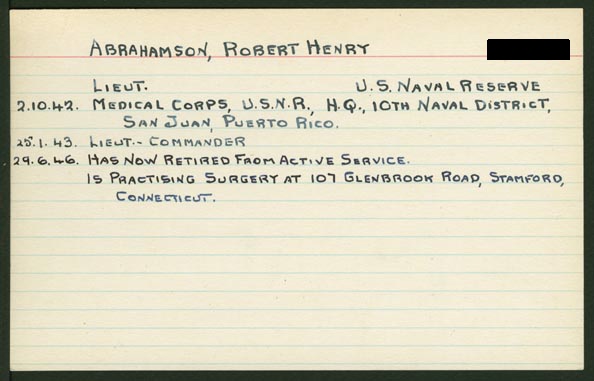 ABRAHAMSON, ROBERT HENRY
LIEUT. U.S. NAVAL RESERVE
2.10.42. MEDICAL CORPS, U.S.N.R., H.Q., 10TH NAVAL DISTRICT,
SAN JUAN, PUERTO RICO.
25.1.43. LIEUT.-COMMANDER
29.6.46. HAS NOW RETIRED FROM ACTIVE SERVICE.
IS PRACTISING SURGERY AT 107 GLENBROOK ROAD, STAMFORD,
CONNECTICUT.